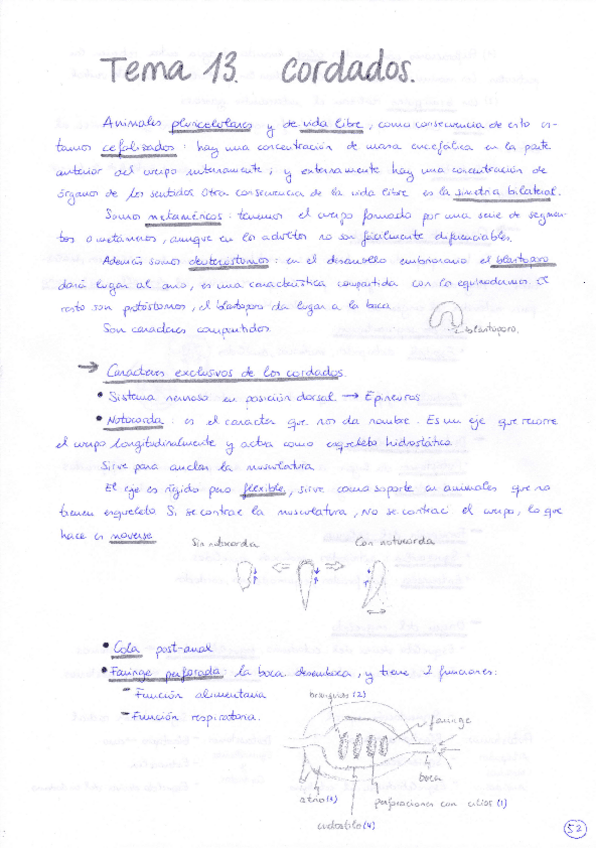 Tema 13. Cordados.
Animales pluricelulares y de vida libre, como consecuencia de esto es-
tamos cefalizados: hay una concentración de masa encefálica en la parte
anterior del cuerpo internamente; y externamente hay una concentración de
órganos de los sentidos. Otra consecuencia de la vida libre es la simetría bilateral.
Somos metaméricos: tenemos el cuerpo formado por una serie de segmen-
tos o metámeros, aunque en los adultos no son facilmente diferenciables.
Además somos deuteróstomos: en el desarrollo embrionario el blastoporo
dará lugar al ano, es una característica compartida con los equinodermos. El
resto son protóstomos, el blastoporo da lugar a la boca.
Son caracteres compartidos.
blastoporo.
→ Caracteres exclusivos de los cordados.
• Sistema nervioso en posición dorsal → Epineuros
• Notocorda: es el caracter que nos da nombre. Es un eje que recorre
el cuerpo longitudinalmente y actúa como esqueleto hidrostático.
Sirve para anclar la musculatura.
El eje es rígido pero flexible, sirve como soporte en animales que no
tienen esqueleto. Si se contrae la musculatura, no se contrae el cuerpo, lo que
hace es moverse
Sin notocorda
Con notocorda
• Cola post-anal
• Faringe perforada: la boca desemboca, y tiene 2 funciones:
- Función alimentaria
- Función respiratoria.
branquias (2)
faringe
boca
atrio
perforaciones con cilios (1)
endostilo (4)
52